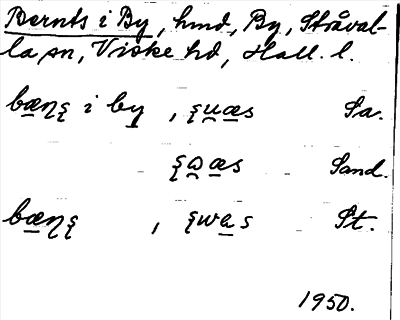 Bernts i By, hmd, By, Stråval-
la sn, Viske hd, Hall. l.
bæɳʂ i by, ʂu̯æs Sa.
ʂɷ̯æs Sand.
bæɳʂ, ʂwas St.
1950.